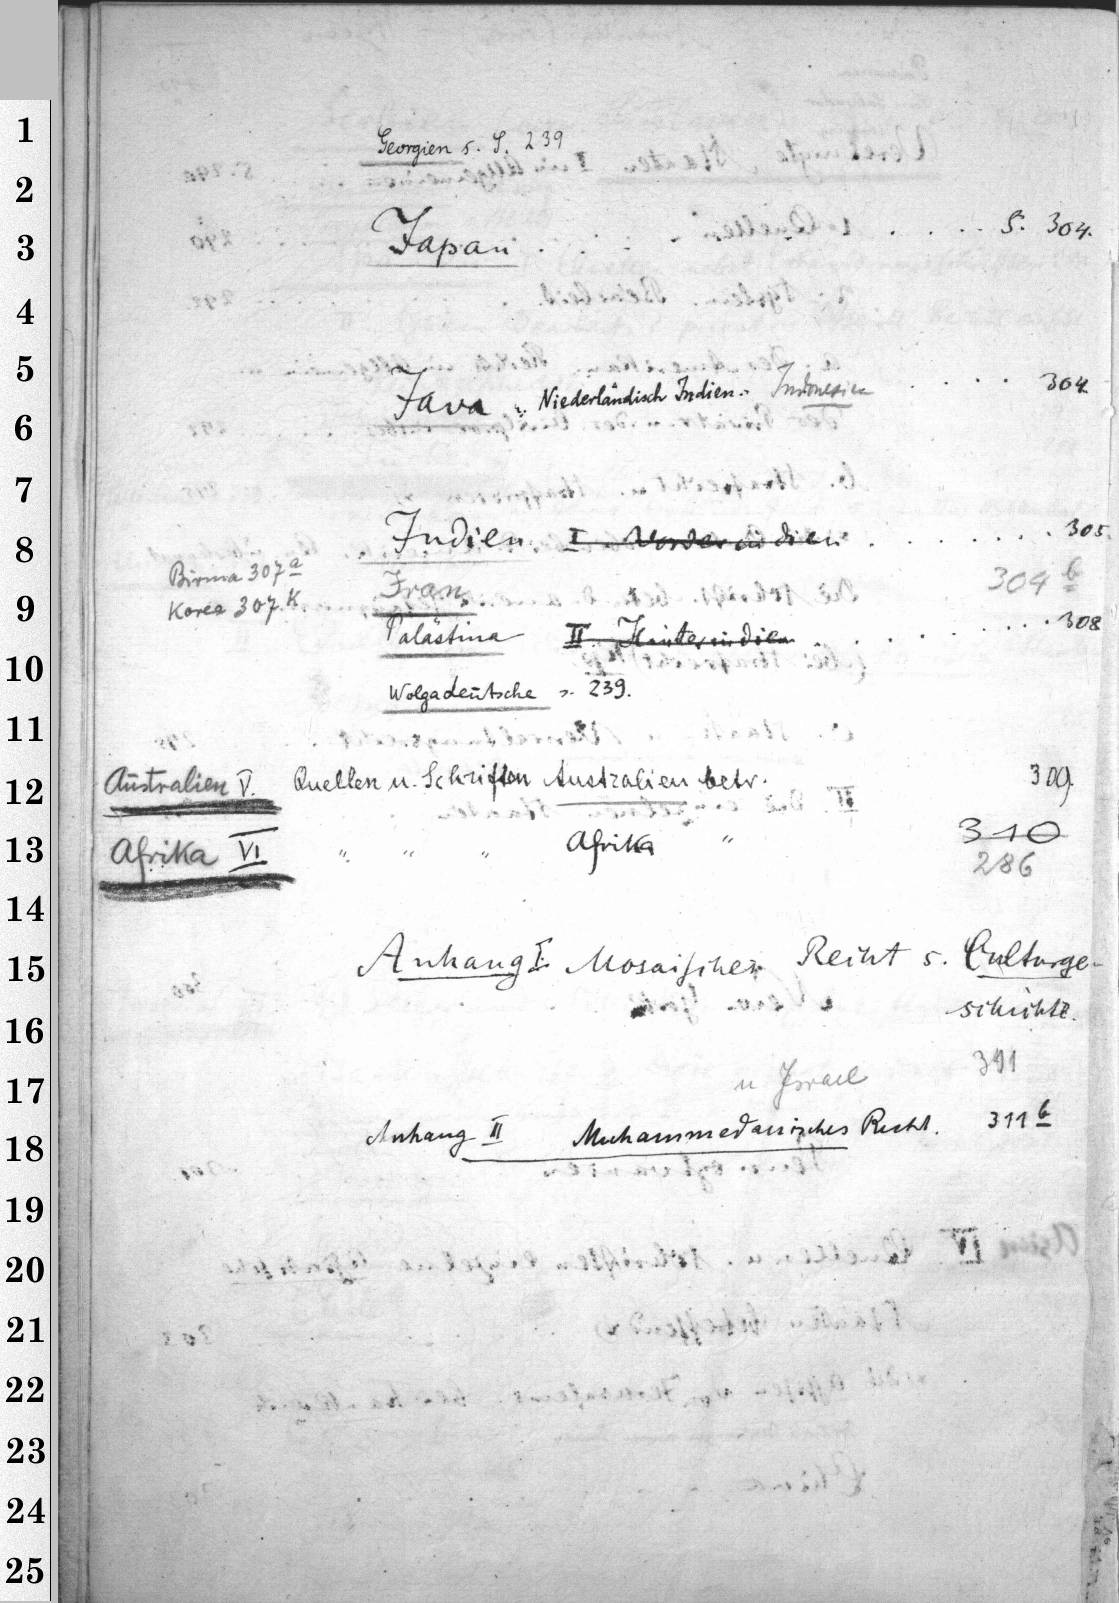 Georgien s. S. 239
Japan . . . . . . . . S. 304.
Java . Niederländisch Indien . Indonesien . . . . 304
Indien I Vorderindien . . . . . . . 305
Birma 307 a
Iran 304 b
Korea 307.K
Palästina II Hinterindien . . . . . . . . 308
Wolgadeutsche s. 239.
Australien V. Quellen u. Schriften Australien betr. 309
Afrika VI " " " Afrika " 310
286
Anhang I Mosaisches Recht s. Culturge-
schichte.
u Israel 311
Anhang II Muhammedanisches Recht. 311 b
1
2
3
4
5
6
7
8
9
10
11
12
13
14
15
16
17
18
19
20
21
22
23
24
25